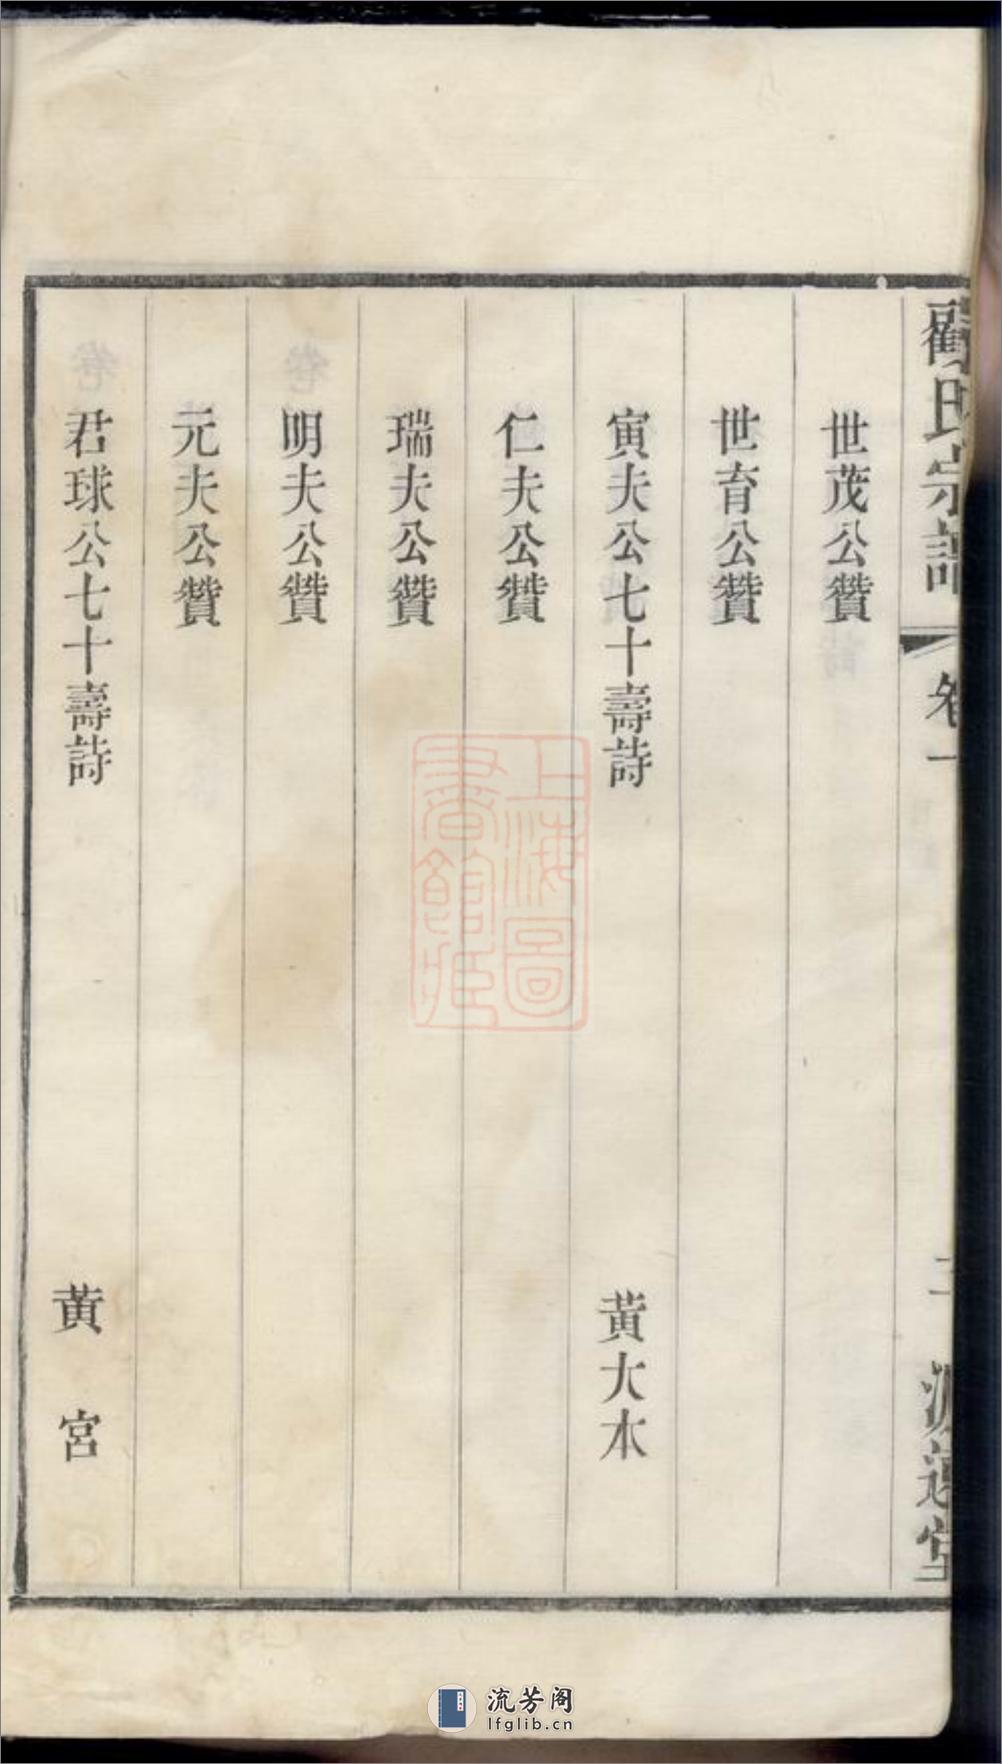 世茂公贊
世育公贊
寅夫公七十壽詩 黃大本
仁夫公贊
瑞夫公贊
明夫公贊
元夫公贊
君球公七十壽詩 黃宮
氏宗譜 卷一 堂
上海圖書館藏
流芳阁
lfglib.cn